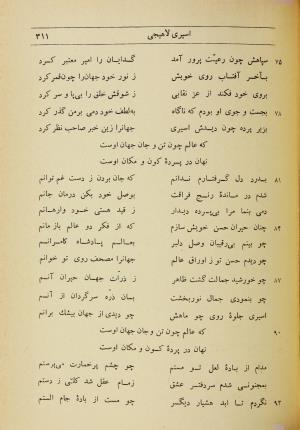 ۳۱۱
اسیری لاهیجی
۷۵ سپاهش چون رعیت پرور آمد گدایان را امیر معتبر کرد
بآخر آفتاب روی خویش ز نور خود جهان را چون قمر کرد
بروی خود فکند از عز نقابی ز شوقش خلق را بی پا و سر کرد
۷۸ بجست و جوی او بودم که ناگاه به لطف خود دمی برمن گذر کرد
بزیر پرده چون دیدش اسیری جهانرا زین خبر صاحب نظر کرد
که عالم چون تن و جان جهان اوست
نهان در پردهٔ کون و مکان اوست
۸۱ بدرد دل گرفتارم ندانم که جان بردن ز دست غم توانم
شدم در ماندهٔ رنج فراقت بوصل خود بکن درمان جانم
دمی بنما مرا بی پرده دیدار ز قید هستی خود وارهانم
۸۴ چنان حیران حسن خویش سازم که از فکر دو عالم بازمانم
چو بینم بی رقیبان وصل دلبر بعالم پادشاه کامرانم
چو دیدم حسن تو ز اوراق عالم جهانرا مصحف روی تو خوانم
۸۷ چو خورشید جمالت گشت ظاهر ز ذرّات جهان حیران آنم
چو بنمودی جمال نوربخشت بسان ذره سرگردان از آنم
اسیری جلوهٔ روی چو ماهش چو دیدی از جهان بیشک برانم
۹۰ که عالم چون تن وجان جهان اوست
نهان در پردهٔ کون و مکان اوست
مدام از بادهٔ لعل تو مستم چو چشم پرخمارت می پرستم
بمجنونی شدم سردفتر عشق زمام عقل شد ز دستم
۹۳ نگردم تا ابد هشیار دیگر چو مست از بادهٔ جام الستم